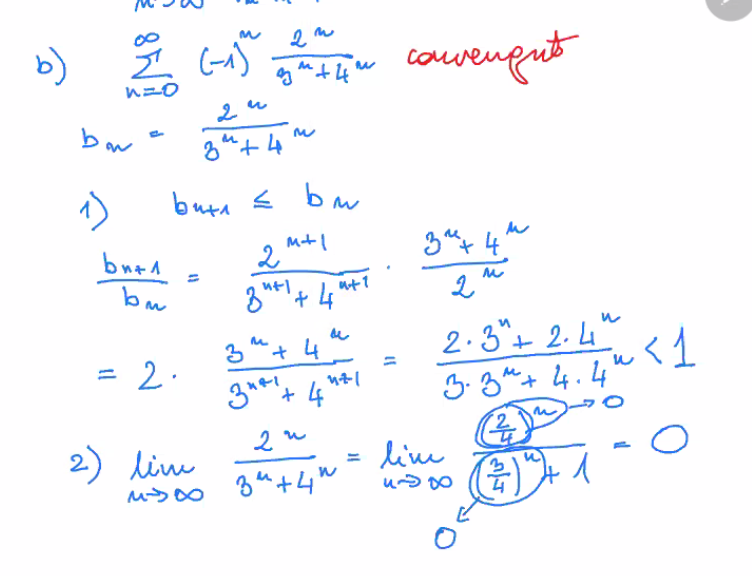 b) ∑_{n=0}^{∞} (-1)^n 2^n/(3^n+4^n) convergent
b_n = 2^n/(3^n+4^n)
1) b_{n+1} ≤ b_n
b_{n+1}/b_n = 2^{n+1}/(3^{n+1}+4^{n+1}) · (3^n+4^n)/2^n
= 2 · (3^n+4^n)/(3^{n+1}+4^{n+1}) = (2·3^n+2·4^n)/(3·3^n+4·4^n) < 1
2) lim_{n→∞} 2^n/(3^n+4^n) = lim_{n→∞} (2/4)^n/((3/4)^n+1) = 0
→ 0
0